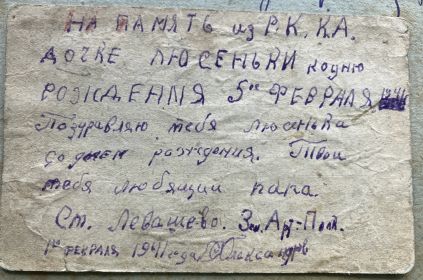 НА ПАМЯТЬ из Р.К.К.А.
ДОЧКЕ ЛЮСЕНЬКИ ко дню
РОЖДЕНИЯ 5го ФЕВРАЛЯ 1941
Поздравляю тебя Люсенька
со днем рождения. Твой
тебя любящий папа.
Ст. Левашево. Арт-Полк.
1го ФЕВРАЛЯ 1941 года